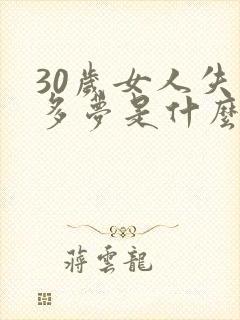 30歲女人失
多夢是什麼
蔣雲龍